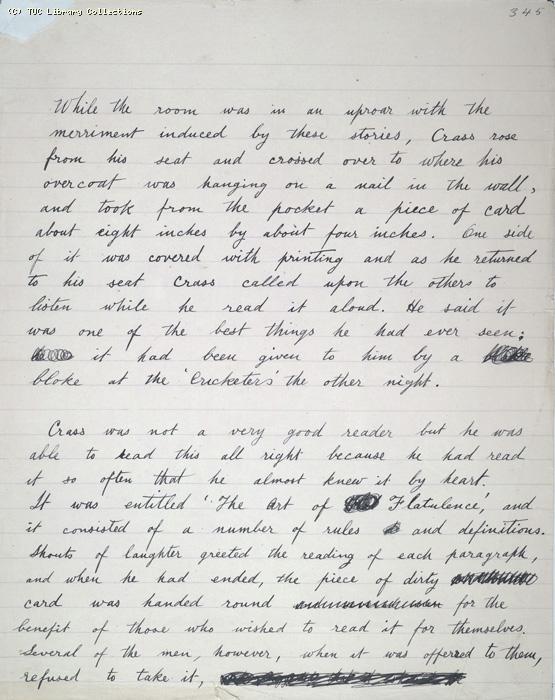 (C) TUC Library Collections
345
While the room was in an uproar with the
merriment induced by these stories, Crass rose
from his seat and crossed over to where his
overcoat was hanging on a nail in the wall,
and took from the pocket a piece of card
about eight inches by about four inches. One side
of it was covered with printing and as he returned
to his seat Crass called upon the others to
listen while he read it aloud. He said it
was one of the best things he had ever seen:
it had been given to him by a
bloke at the 'Cricketers' the other night.
Crass was not a very good reader but he was
able to read this all right because he had read
it so often that he almost knew it by heart.
It was entitled 'The Art of Flatulence', and
it consisted of a number of rules and definitions.
Shouts of laughter greeted the reading of each paragraph,
and when he had ended, the piece of dirty
card was handed round for the
benefit of those who wished to read it for themselves.
Several of the men, however, when it was offerred to them,
refused to take it,